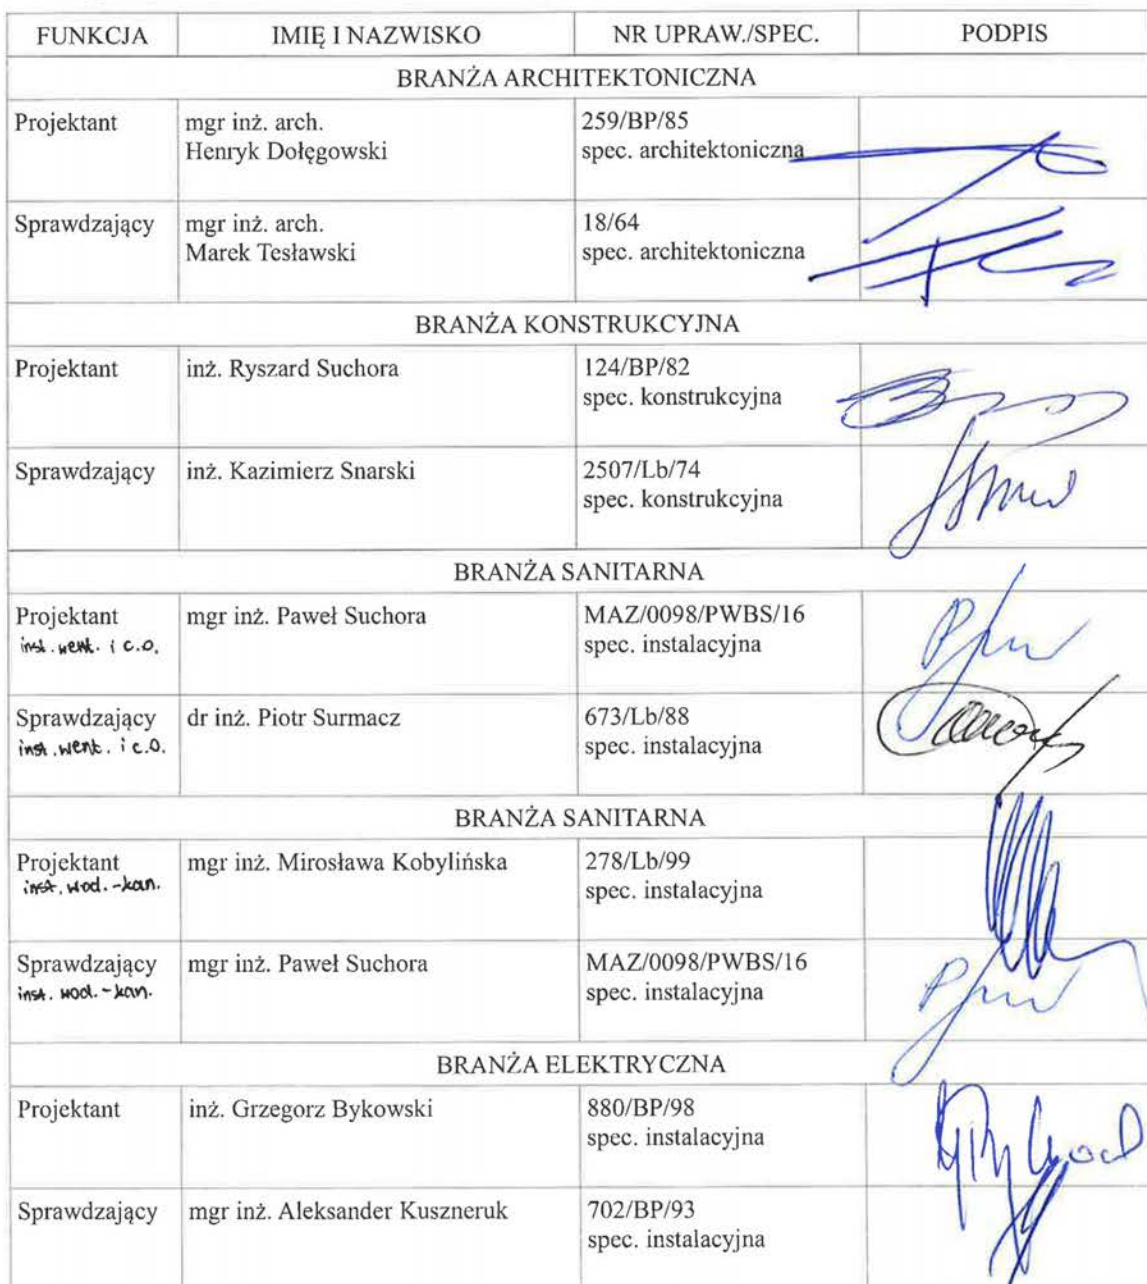 FUNKCJA IMIĘ I NAZWISKO NR UPRAW./SPEC. PODPIS
BRANŻA ARCHITEKTONICZNA
Projektant mgr inż. arch. 259/BP/85
Henryk Dołęgowski spec. architektoniczna
Sprawdzający mgr inż. arch. 18/64
Marek Tesławski spec. architektoniczna
BRANŻA KONSTRUKCYJNA
Projektant inż. Ryszard Suchora 124/BP/82
spec. konstrukcyjna
Sprawdzający inż. Kazimierz Snarski 2507/Lb/74
spec. konstrukcyjna
BRANŻA SANITARNA
Projektant mgr inż. Paweł Suchora MAZ/0098/PWBS/16
inst. went. i c.o. spec. instalacyjna
Sprawdzający dr inż. Piotr Surmacz 673/Lb/88
inst. went. i c.o. spec. instalacyjna
BRANŻA SANITARNA
Projektant mgr inż. Mirosława Kobylińska 278/Lb/99
inst. wod.-kan. spec. instalacyjna
Sprawdzający mgr inż. Paweł Suchora MAZ/0098/PWBS/16
inst. wod.-kan. spec. instalacyjna
BRANŻA ELEKTRYCZNA
Projektant inż. Grzegorz Bykowski 880/BP/98
spec. instalacyjna
Sprawdzający mgr inż. Aleksander Kuszneruk 702/BP/93
spec. instalacyjna